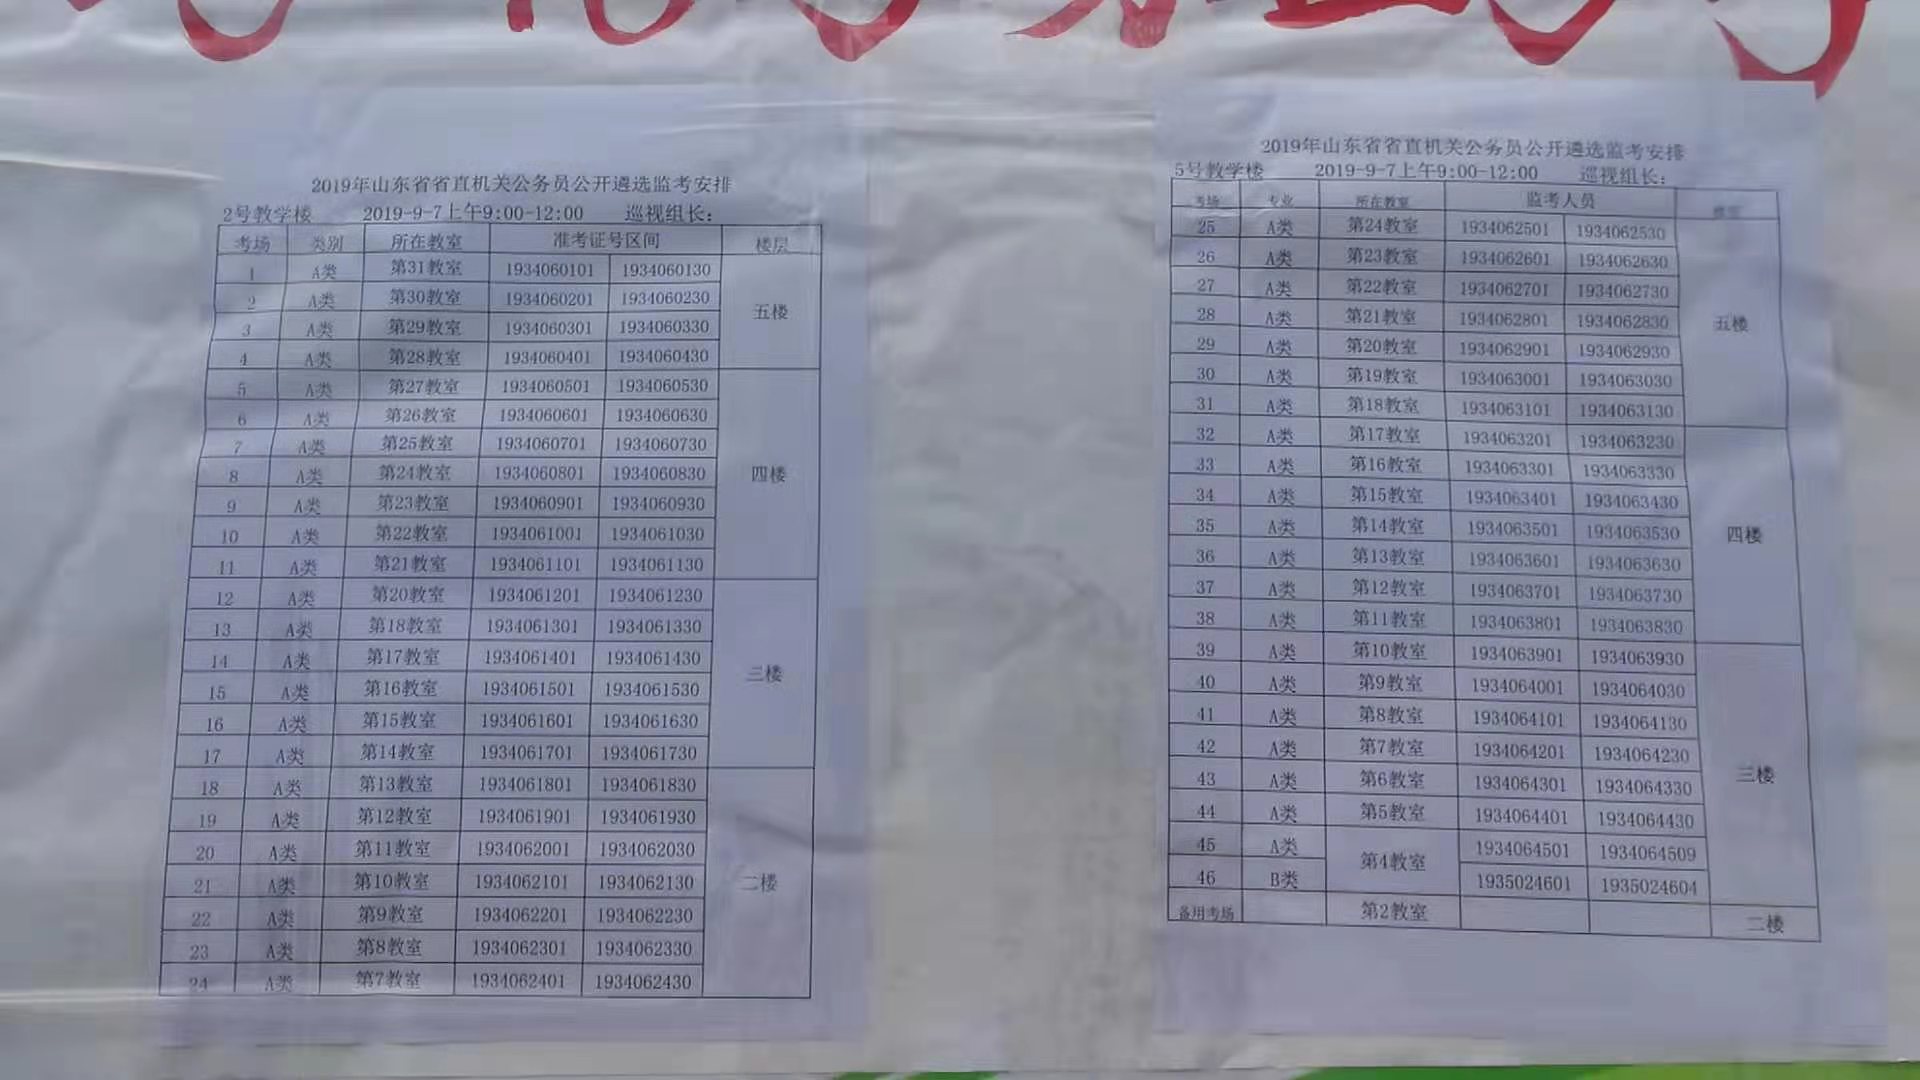 2019年山东省省直机关公务员公开遴选监考安排
2号教学楼 2019-9-7上午9:00-12:00 巡视组长：
考场 类别 所在教室 准考证号区间 楼层
1 A类 第31教室 1934060101 1934060130
2 A类 第30教室 1934060201 1934060230
五楼
3 A类 第29教室 1934060301 1934060330
4 A类 第28教室 1934060401 1934060430
5 A类 第27教室 1934060501 1934060530
6 A类 第26教室 1934060601 1934060630
7 A类 第25教室 1934060701 1934060730
8 A类 第24教室 1934060801 1934060830 四楼
9 A类 第23教室 1934060901 1934060930
10 A类 第22教室 1934061001 1934061030
11 A类 第21教室 1934061101 1934061130
12 A类 第20教室 1934061201 1934061230
13 A类 第18教室 1934061301 1934061330
14 A类 第17教室 1934061401 1934061430
三楼
15 A类 第16教室 1934061501 1934061530
16 A类 第15教室 1934061601 1934061630
17 A类 第14教室 1934061701 1934061730
18 A类 第13教室 1934061801 1934061830
19 A类 第12教室 1934061901 1934061930
20 A类 第11教室 1934062001 1934062030
21 A类 第10教室 1934062101 1934062130 二楼
22 A类 第9教室 1934062201 1934062230
23 A类 第8教室 1934062301 1934062330
24 A类 第7教室 1934062401 1934062430
2019年山东省省直机关公务员公开遴选监考安排
5号教学楼 2019-9-7上午9:00-12:00 巡视组长：
考场 专业 所在教室 监考人员
25 A类 第24教室 1934062501 1934062530
26 A类 第23教室 1934062601 1934062630
27 A类 第22教室 1934062701 1934062730
28 A类 第21教室 1934062801 1934062830 五楼
29 A类 第20教室 1934062901 1934062930
30 A类 第19教室 1934063001 1934063030
31 A类 第18教室 1934063101 1934063130
32 A类 第17教室 1934063201 1934063230
33 A类 第16教室 1934063301 1934063330
34 A类 第15教室 1934063401 1934063430
35 A类 第14教室 1934063501 1934063530 四楼
36 A类 第13教室 1934063601 1934063630
37 A类 第12教室 1934063701 1934063730
38 A类 第11教室 1934063801 1934063830
39 A类 第10教室 1934063901 1934063930
40 A类 第9教室 1934064001 1934064030
41 A类 第8教室 1934064101 1934064130
42 A类 第7教室 1934064201 1934064230
43 A类 第6教室 1934064301 1934064330 三楼
44 A类 第5教室 1934064401 1934064430
45 A类 第4教室 1934064501 1934064509
46 B类 1935024601 1935024604
备用考场 第2教室 二楼